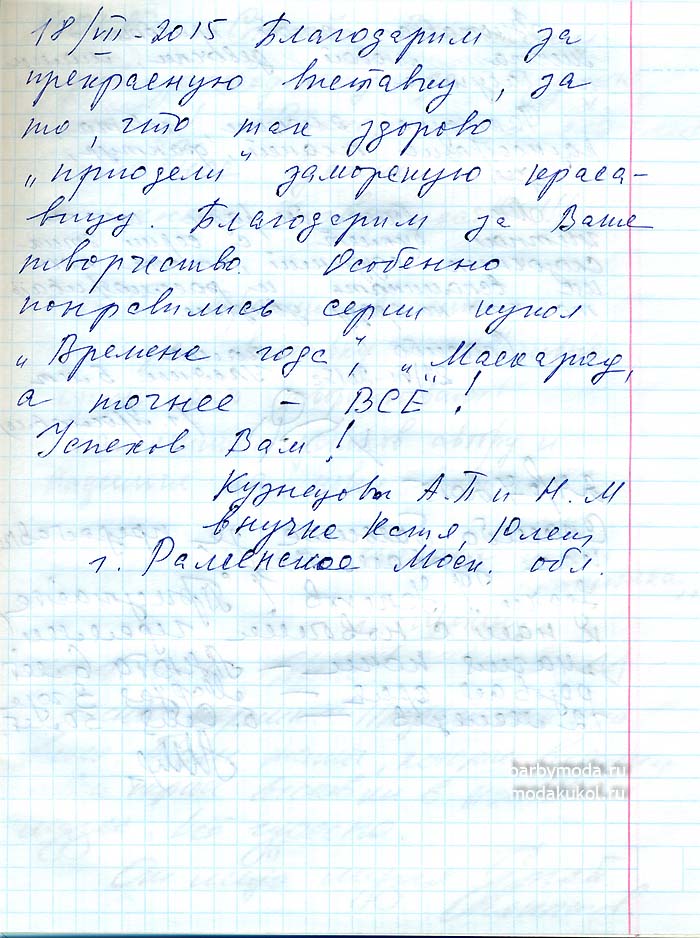 18/VIII-2015 Благодарим за
прекрасную выставку, за
то, что так здорово
„приодели“ заморскую краса-
вицу. Благодарим за Ваше
творчество. Особенно
понравились серии кукол
„Времена года“, „Маскарад,
а точнее – ВСЁ!
Успехов Вам!
Кузнецовы А.П и Н.М
внучка Катя, Юлия
г. Раменское Моск. обл.
barbymoda.ru
modakukol.ru